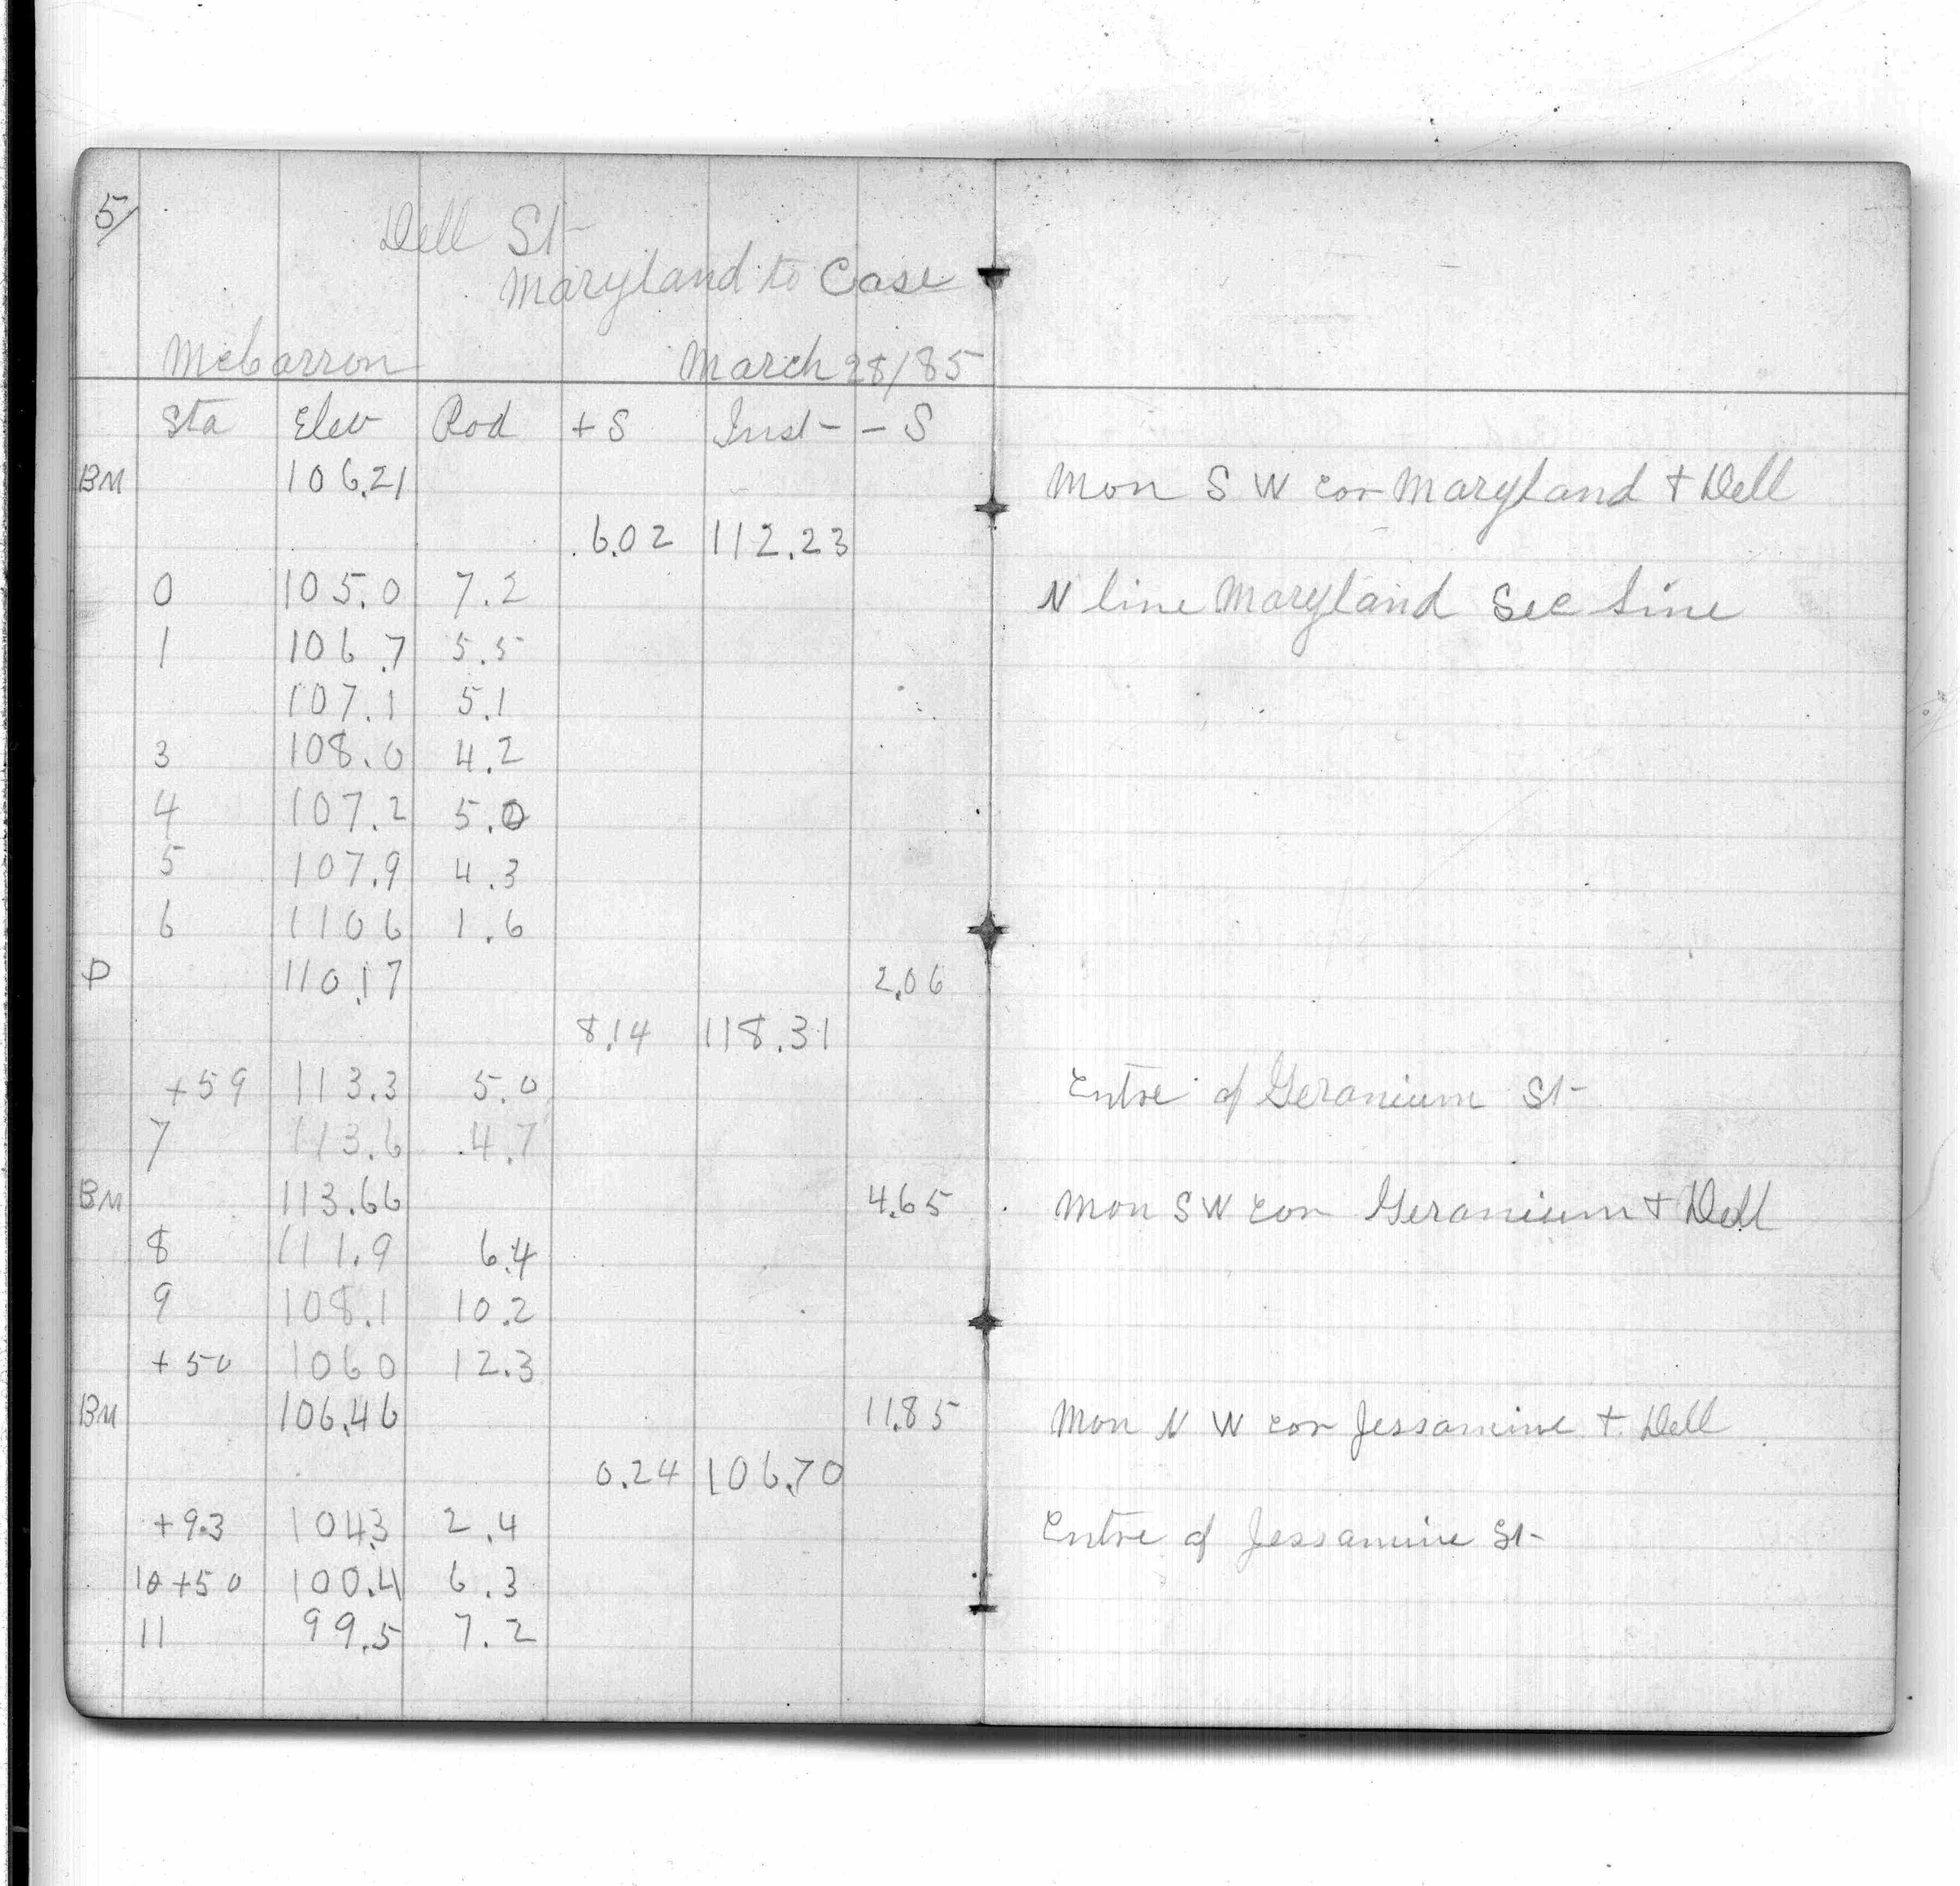 5/
Dell St
Maryland to Case
McCarron March 28/85
Sta Elev Rod + S Inst - S
BM 106.21 Mon S W cor Maryland + Dell
6.02 112.23
0 105.0 7.2 N line Maryland Sec Line
1 106.7 5.5
107.1 5.1
3 108.0 4.2
4 107.2 5.0
5 107.9 4.3
6 1106 1.6
P 110.17 2.06
8.14 118.31
+59 113.3 5.0 Entre of Geranium St
7 113.6 4.7
BM 113.66 4.65 Mon S W cor Geranium + Dell
8 111.9 6.4
9 108.1 10.2
+50 1060 12.3
BM 106.46 11.85 Mon N W cor Jessamine + Dell
0.24 106.70
+93 104.3 2.4 Entre of Jessamine St
10+50 100.4 6.3
11 99.5 7.2